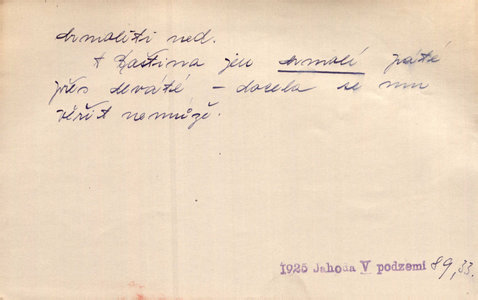 drmoliti ned.
A Baština jen drmolí páté
přes deváté – docela se mu
věřit nemůže.
1925 Jahoda V podzemí 89, 33.